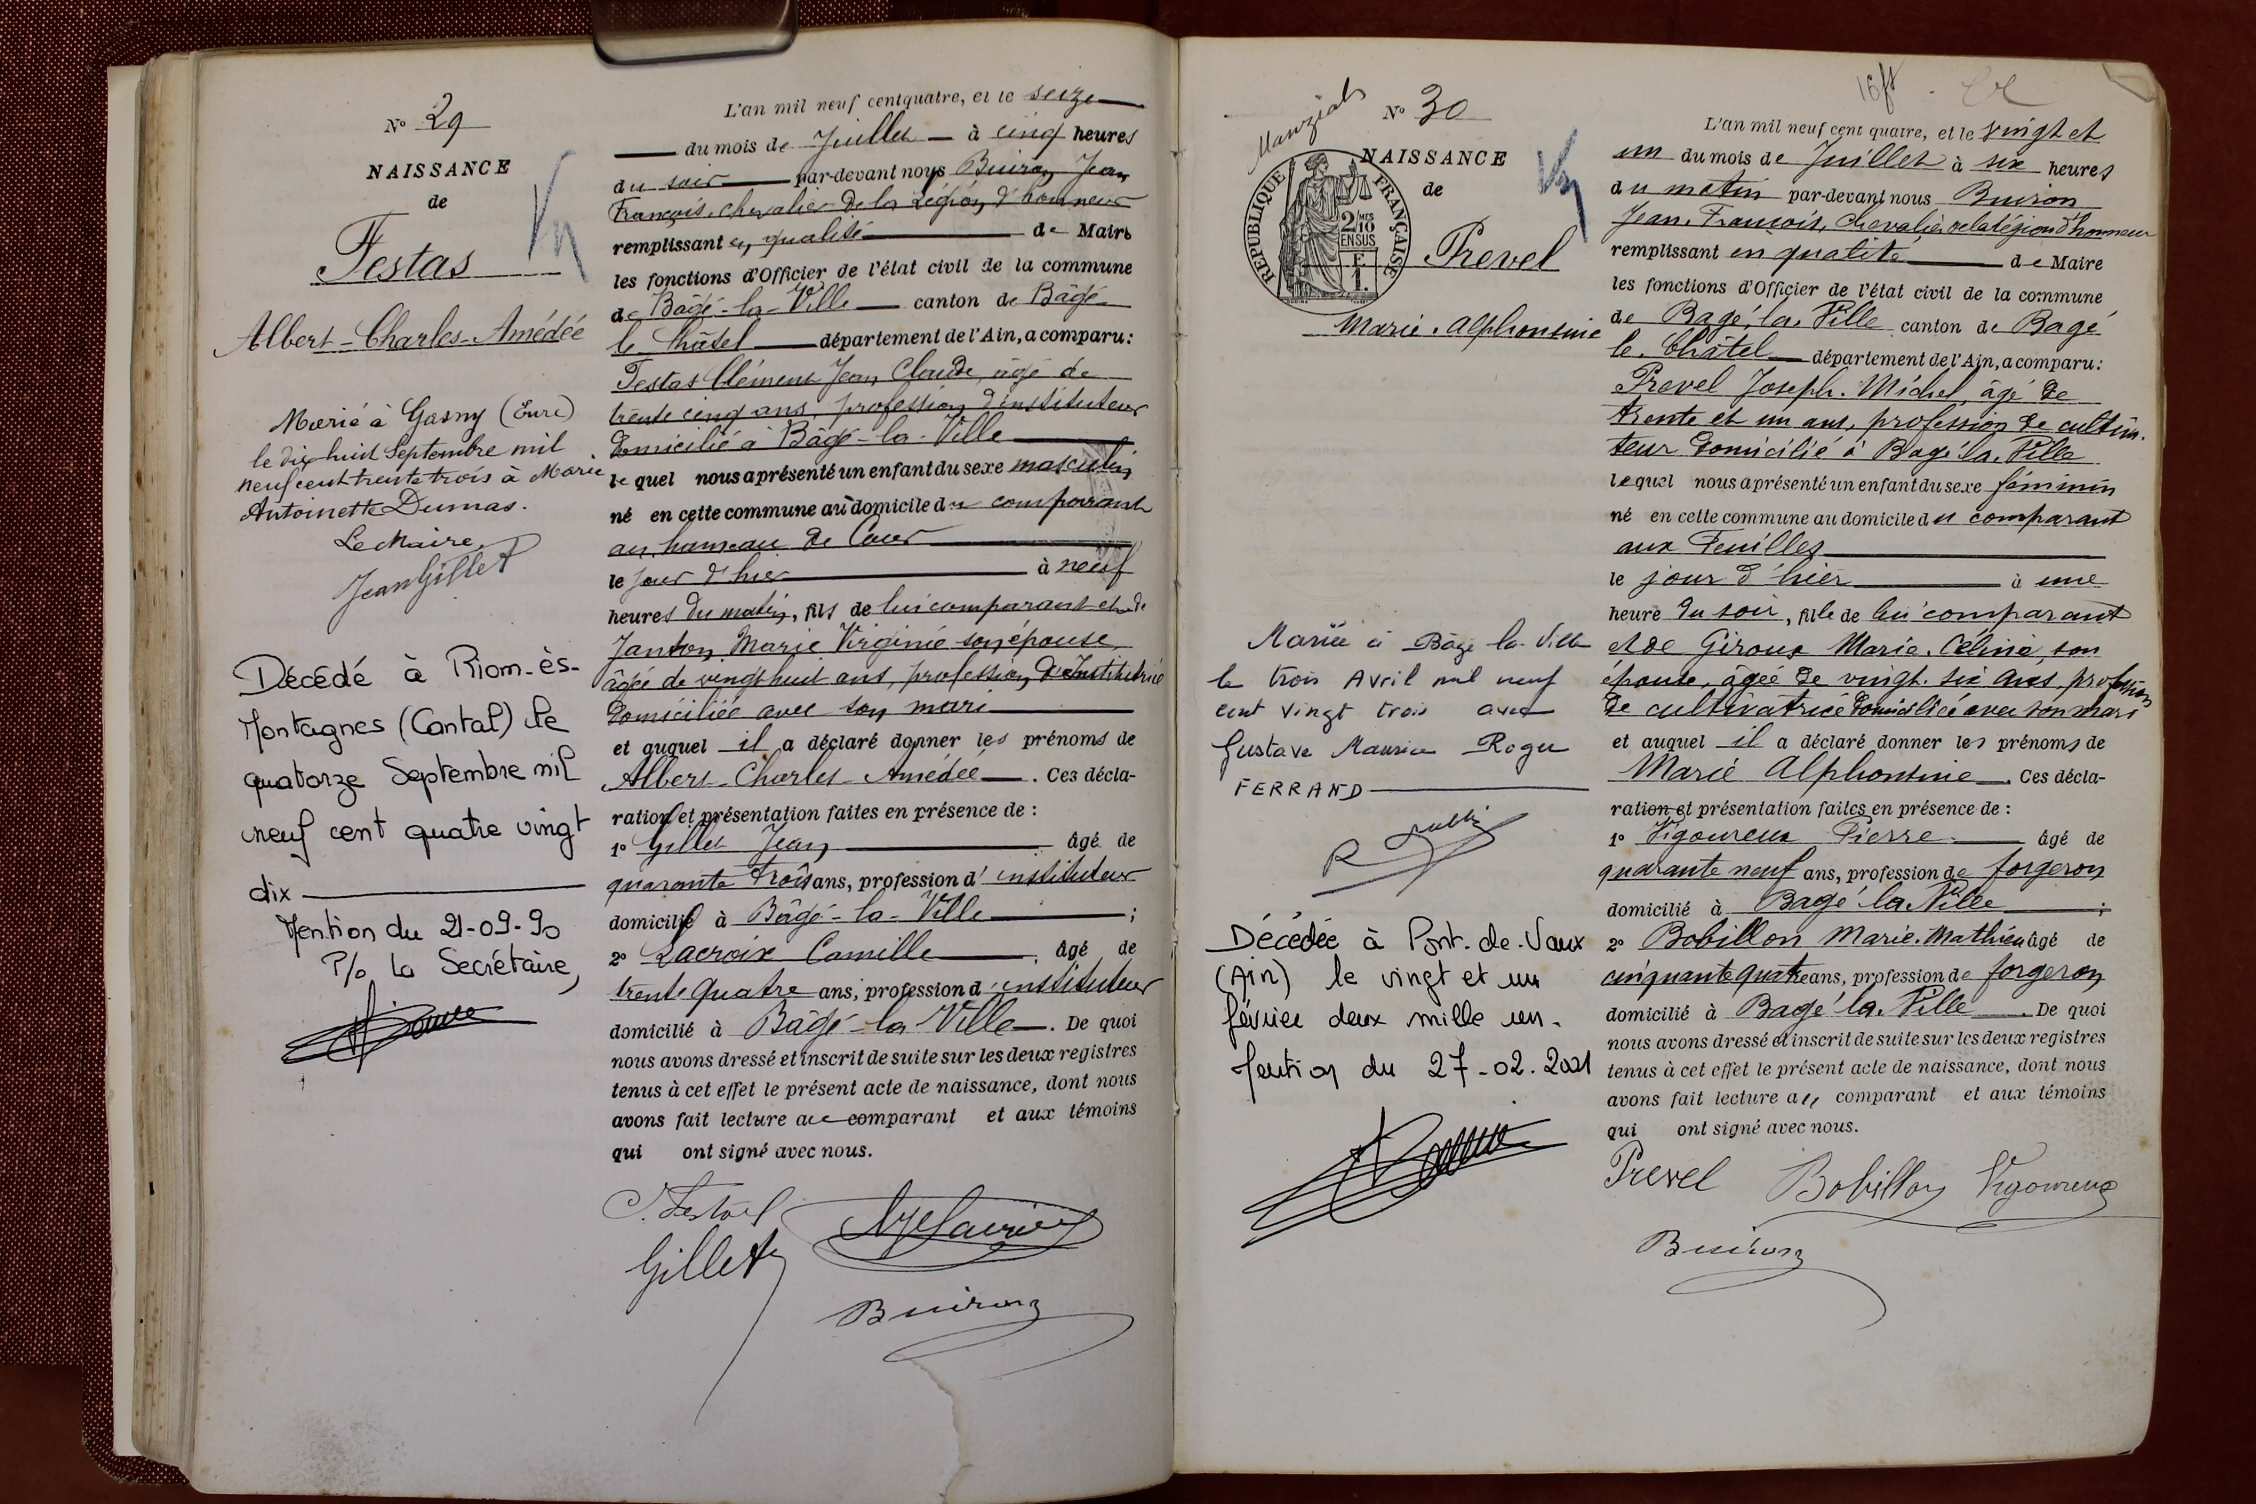 N° 29
NAISSANCE
de
Festas
Albert-Charles-Amédée
Marié à Gasny (Eure)
le dix huit Septembre mil
neuf cent trente trois à Marie
Antoinette Dumas.
Le Maire,
Jean Gillet
Décédé à Riom-ès-
Montagnes (Cantal) le
quatorze Septembre mil
neuf cent quatre vingt
dix
Mention du 21-09-90
P/o la Secrétaire,
L'an mil neuf cent quatre, et le seize
du mois de Juillet à cinq heures
du soir par-devant nous Buiron Jean
François, chevalier de la Légion d'honneur
remplissant en qualité de Maire
les fonctions d'Officier de l'état civil de la commune
de Bâgé-la-Ville canton de Bâgé
le Châtel département de l'Ain, a comparu:
Festas Clément Jean Claude, âgé de
trente cinq ans, profession d'instituteur
domicilié à Bâgé-la-Ville
lequel nous a présenté un enfant du sexe masculin
né en cette commune au domicile du comparant
au hameau de Cour
le jour d'hier à neuf
heures du matin, fils de lui comparant et de
Janton Marie Virginie son épouse,
âgée de vingt huit ans, profession d'Institutrice
domiciliée avec son mari
et auquel il a déclaré donner les prénoms de
Albert-Charles-Amédée. Ces décla-
ration et présentation faites en présence de :
1° Gillet Jean âgé de
quarante trois ans, profession d'instituteur
domicilié à Bâgé-la-Ville ;
2° Lacroix Camille, âgé de
trente quatre ans, profession d'instituteur
domicilié à Bâgé-la-Ville. De quoi
nous avons dressé et inscrit de suite sur les deux registres
tenus à cet effet le présent acte de naissance, dont nous
avons fait lecture au comparant et aux témoins
qui ont signé avec nous.
Gillet
Buiron
Manziat
N° 30
NAISSANCE
de
RÉPUBLIQUE FRANÇAISE
2/10 MES
EN SUS
Prevel
Marie. Alphonsine
Mariée à Bâgé la-Ville
le trois Avril mil neuf
cent vingt trois avec
Gustave Maurice Roger
FERRAND
Décédée à Pont-de-Vaux
(Ain) le vingt et un
février deux mille un.
Mention du 27-02-2001
L'an mil neuf cent quatre, et le vingt et
un du mois de Juillet à six heures
du matin par-devant nous Buiron
Jean. François, chevalier de la légion d'honneur
remplissant en qualité de Maire
les fonctions d'Officier de l'état civil de la commune
de Bagé. la. Ville canton de Bagé
le. Châtel département de l'Ain, a comparu:
Prevel Joseph. Michel, âgé de
trente et un ans, profession de cultiva.
teur domicilié à Bagé la. Ville
lequel nous a présenté un enfant du sexe féminin
né en cette commune au domicile du comparant
aux Feuilles
le jour d'hier à une
heure du soir, fille de lui comparant
et de Giroux Marie. Céline, son
épouse, âgée de vingt. six ans, profession
de cultivatrice domiciliée avec son mari
et auquel il a déclaré donner les prénoms de
Marie Alphonsine. Ces décla-
ration et présentation faites en présence de :
1° Vigoureux Pierre âgé de
quarante neuf ans, profession de forgeron
domicilié à Bagé la Ville ;
2° Bobillon Marie. Mathieu âgé de
cinquante quatre ans, profession de forgeron
domicilié à Bagé la. Ville. De quoi
nous avons dressé et inscrit de suite sur les deux registres
tenus à cet effet le présent acte de naissance, dont nous
avons fait lecture au comparant et aux témoins
qui ont signé avec nous.
Prevel Bobillon Vigoureux
Buiron